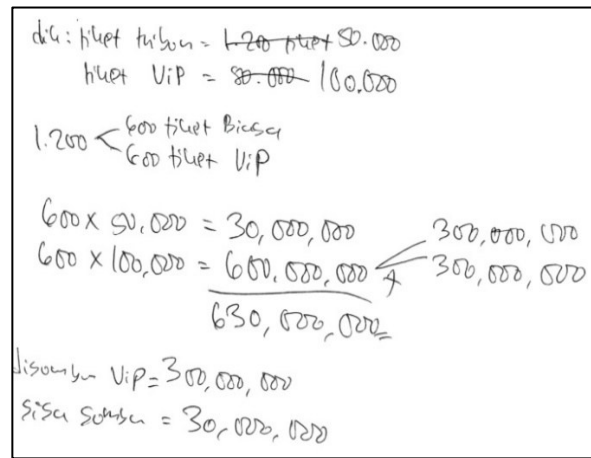 dik: tiket tribun = 1.200 tiket 50.000
tiket ViP = 50.000 100.000
1.200 < 600 tiket Biasa
600 tiket ViP
600 x 50,000 = 30,000,000
600 x 100,000 = 600,000,000 + 300,000,000
300,000,000
630,000,000
disumbang ViP = 300,000,000
sisa = 30,000,000